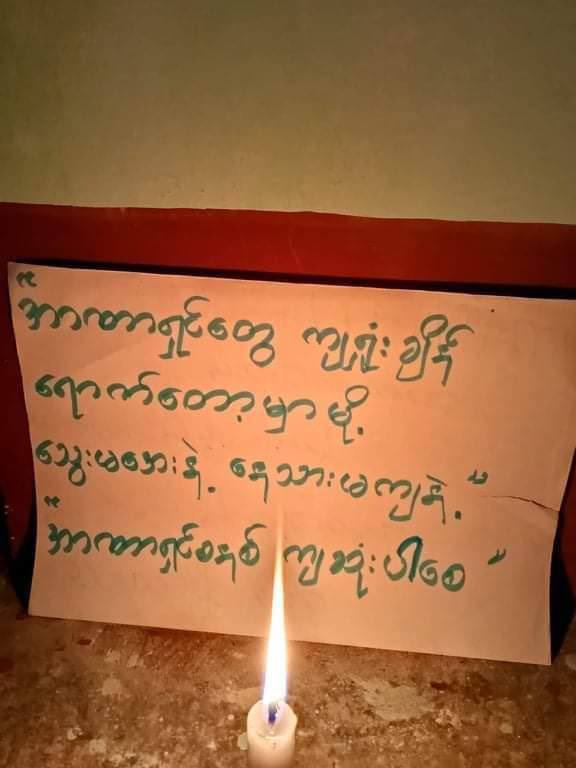 "အာဏာရှင်တွေ ကျရှုံးချိန်
ရောက်တော့မှာမို့
သွေးမအေးနဲ့ နေသားမကျနဲ့"
"အာဏာရှင်စနစ် ကျဆုံးပါစေ"